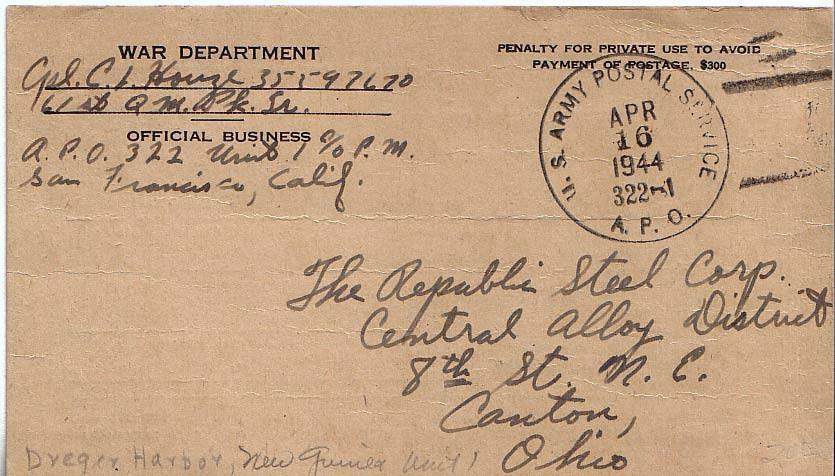 WAR DEPARTMENT
Cpl. C. L. Houze 35597670
61st Q.M. Pk. Sr.
OFFICIAL BUSINESS
A.P.O. 322 Unit 1 c/o P.M.
San Francisco, Calif.
PENALTY FOR PRIVATE USE TO AVOID
PAYMENT OF POSTAGE, $300
U. S. ARMY POSTAL SERVICE
APR
16
1944
322-1
A. P. O.
The Republic Steel Corp.
Central Alloy District
8th St. N. E.
Canton,
Ohio
Dreger Harbor, New Guinea Unit 1